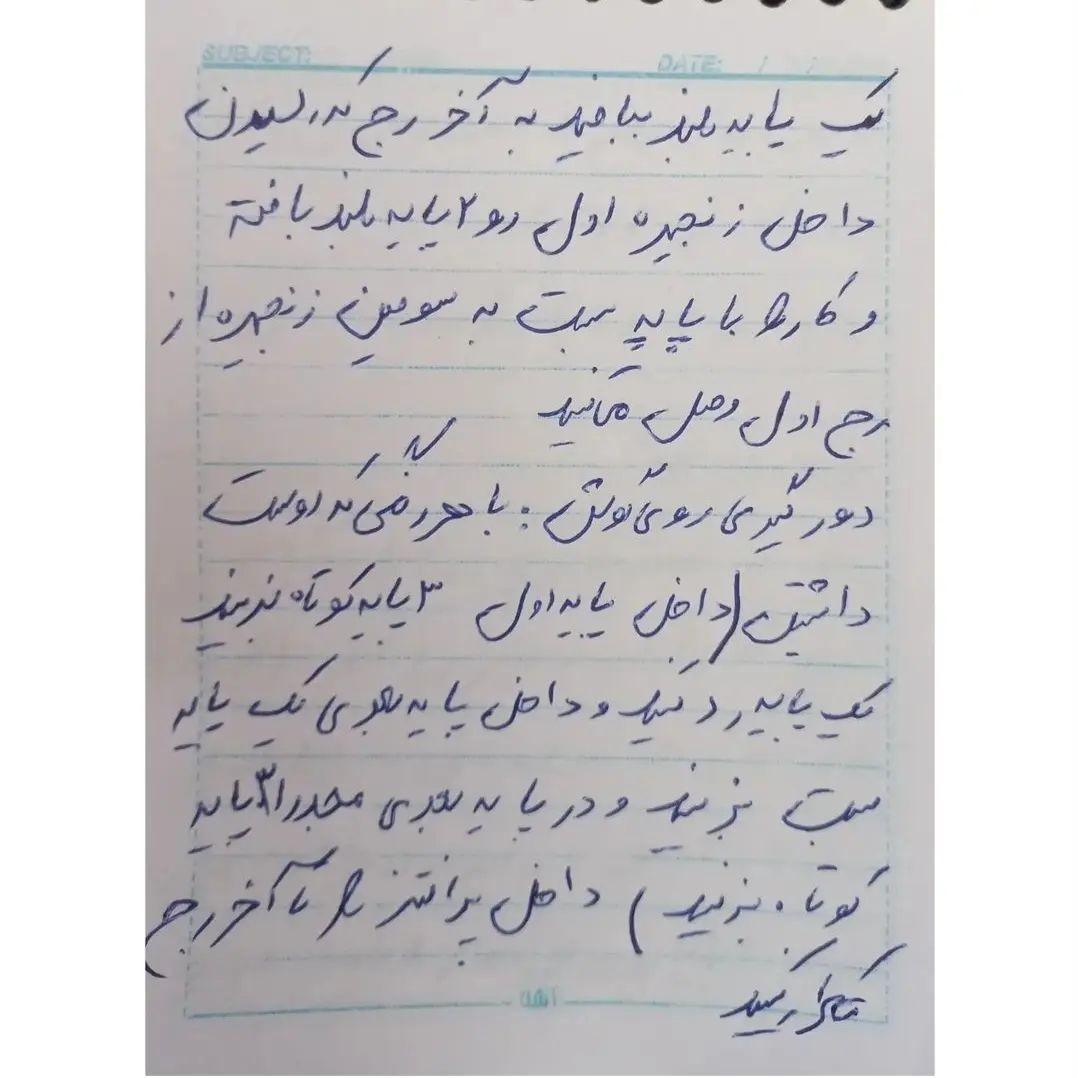 SUBJECT:
DATE: / /
یک پایه بلند ببافید به آخر رج که رسیدن
داخل زنجیره اول دو ۲ پایه بلند بافته
و کار را با پایه ست به سومین زنجیره از
رج اول وصل می‌کنید
دور گیری روی گوش : با هر رنگی که دوست
داشتین (داخل پایه اول ۳ پایه کوتاه بزنید
یک پایه رد کنید و داخل پایه بعدی یک پایه
ست بزنید و در پایه بعدی مجدد ۳ پایه
کوتاه بزنید) داخل پرانتز را تا آخر رج
تکرار کنید